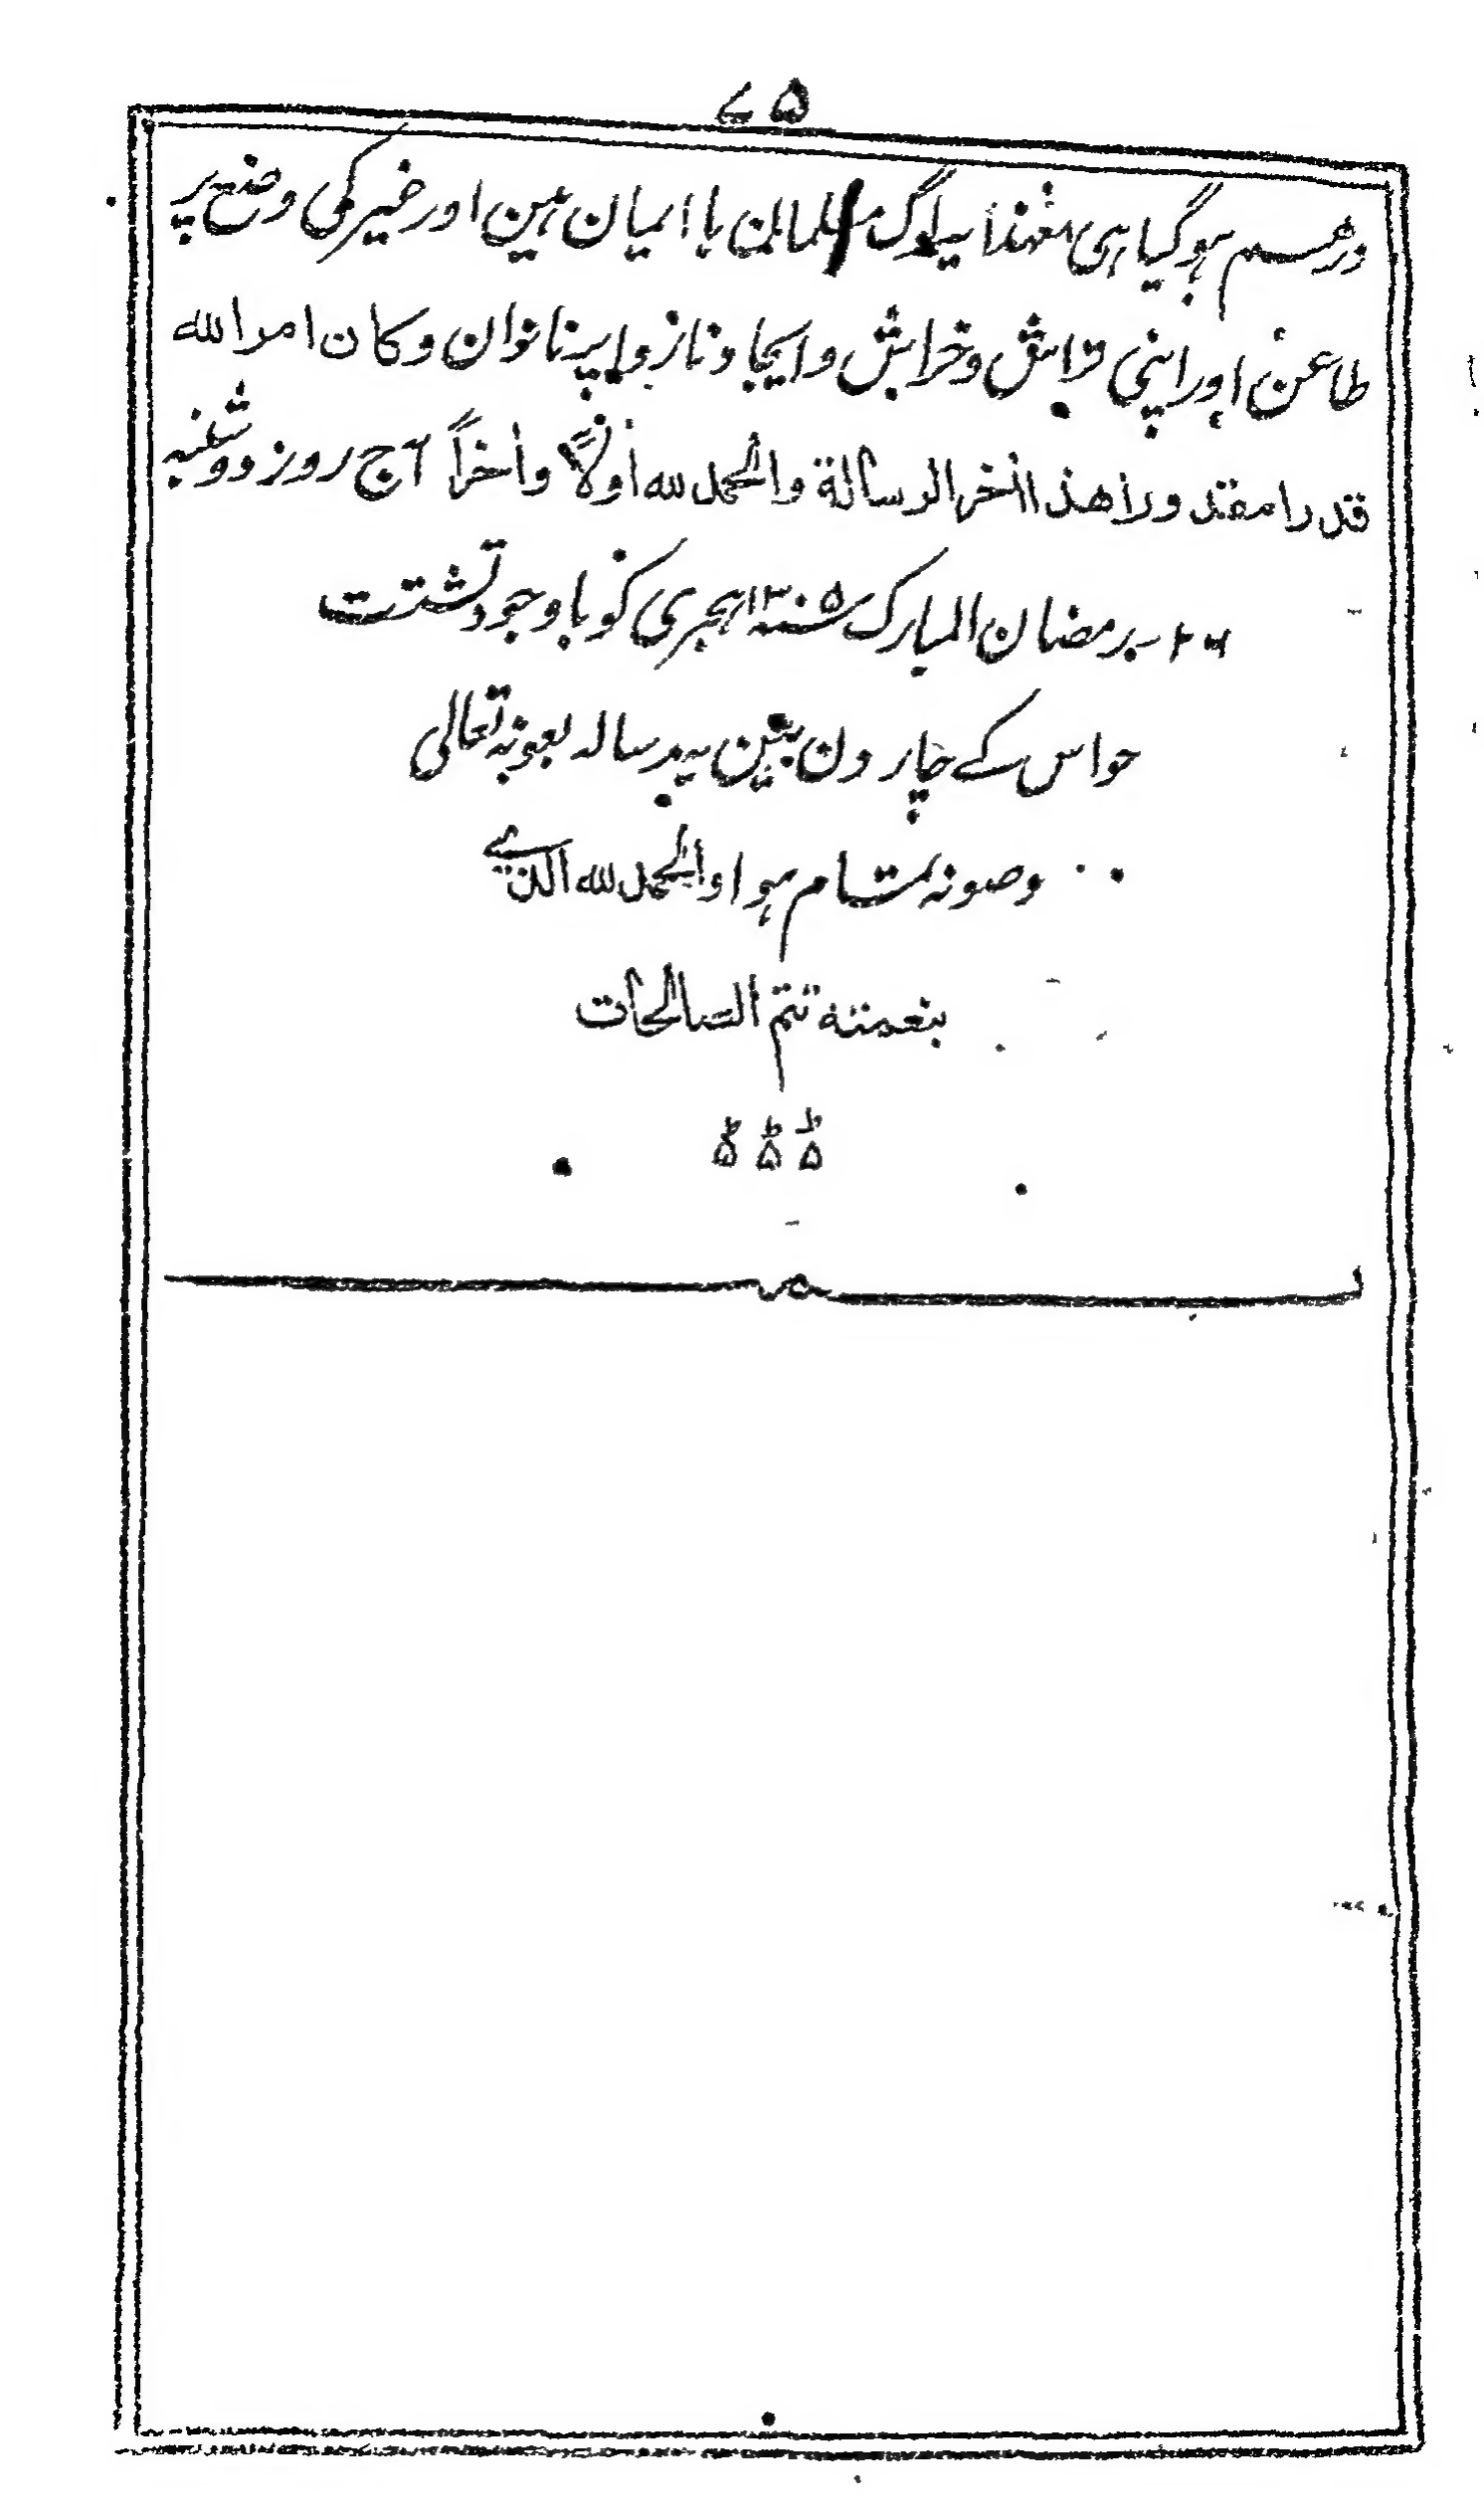 ۷۵
درہم ہوگیا ہی معہذا یہ لوگ مسلمان باایمان ہین اور غیر کی وضع پر
طاعن اور اپنی تراش وخراش وایجاد ناز واپر نازان وکان امر الله
قدرا مقدورا هذا اٰخر الرسالة والحمد لله اولًا واٰخراً آج روز دوشنبہ
۲۶ رمضان المبارک سنہ ۱۳۰۵ ہجری کو باوجود تشتت
حواس کے چار دن مین یہ رسالہ بعونہ تعالی
وصونہ تمام ہوا والحمد لله الذی
بنعمته تتم الصالحات